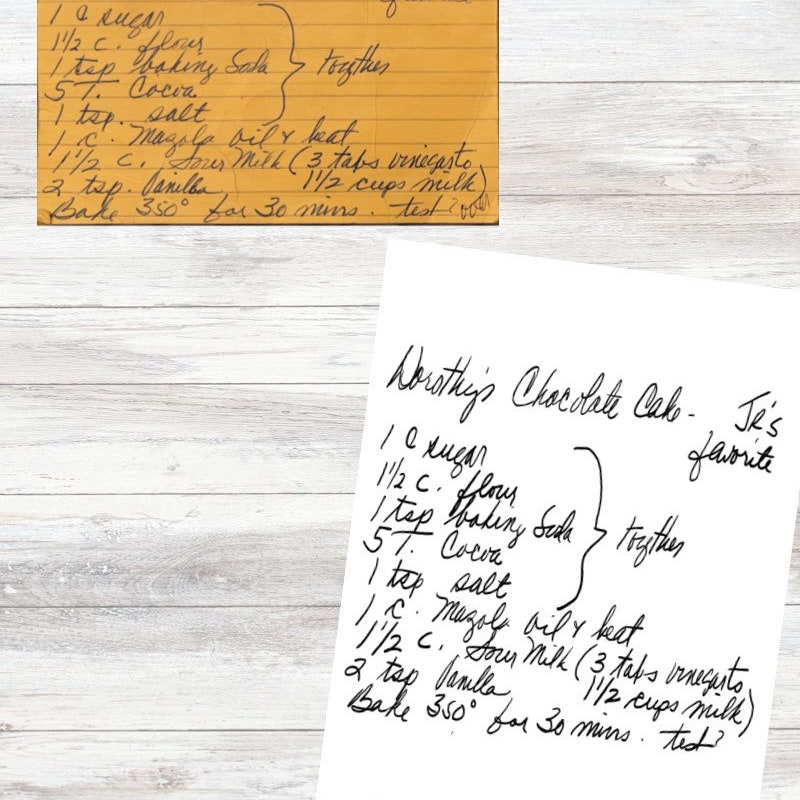 favorite
1 C sugar
1½ c. flour
1 tsp baking Soda } together
5 T. Cocoa
1 tsp. salt
1 c. Mazola oil & beat
1½ c. Sour Milk (3 tabs vinegar to
2 tsp. Vanilla 1½ cups milk)
Bake 350° for 30 mins. test? over
Dorothy's Chocolate Cake - JR's
favorite
1 C sugar
1½ c. flour
1 tsp baking Soda } together
5 T. Cocoa
1 tsp salt
1 c. Mazola oil & beat
1½ c. Sour Milk (3 tabs vinegar to
2 tsp Vanilla 1½ cups milk)
Bake 350° for 30 mins. test?